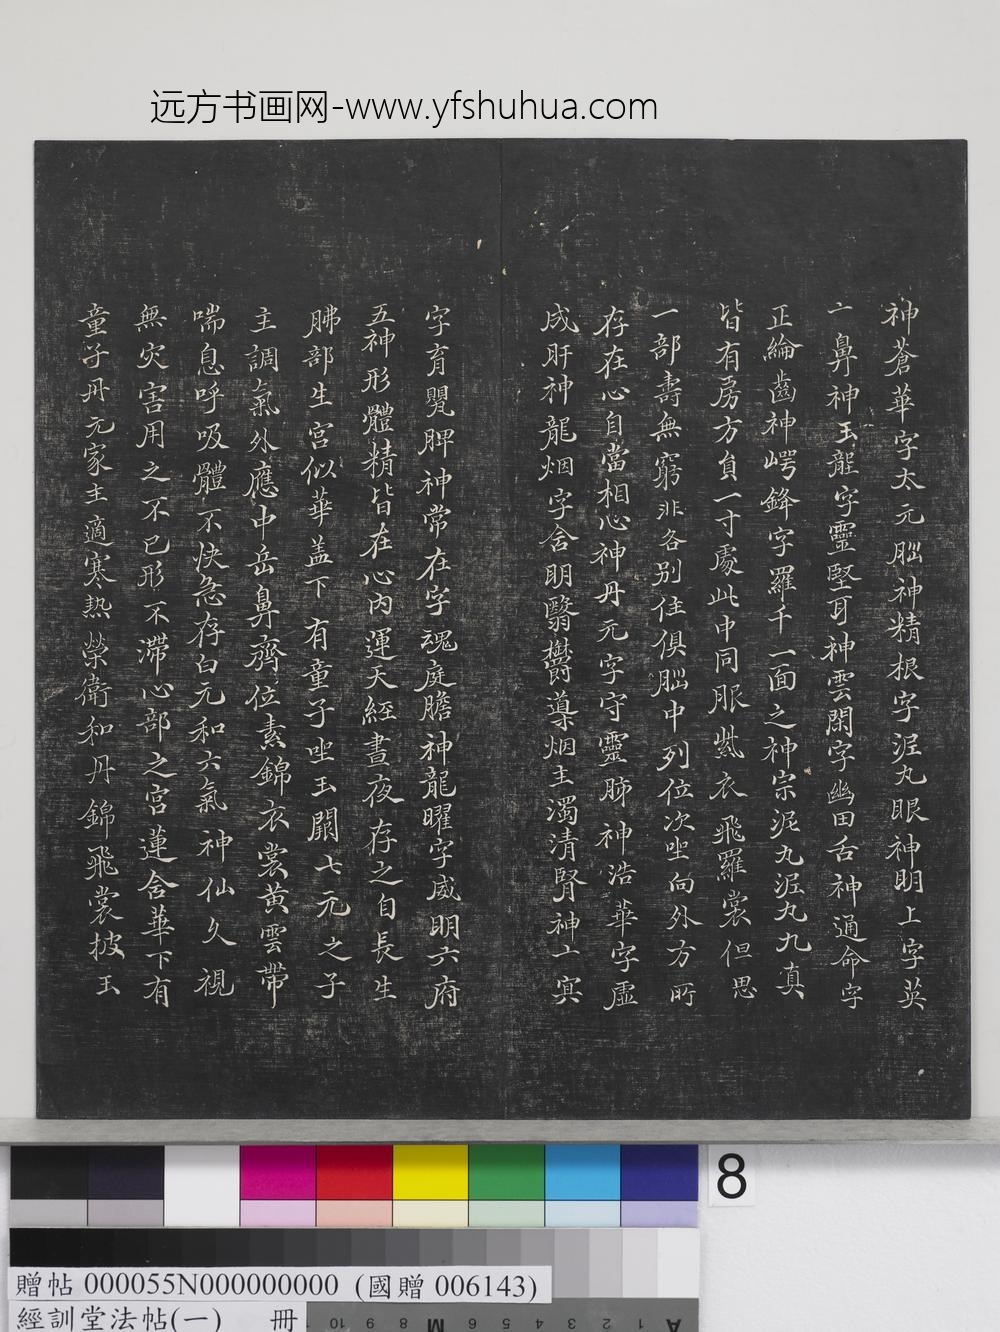 远方书画网-www.yfshuhua.com
神蒼華字太元腦神精根字泥丸眼神明上字英
亠鼻神玉龍字靈堅耳神雲閑字幽田舌神通命字
正綸齒神崿鋒字羅千一面之神宗泥丸泥丸九真
皆有房方員一寸處此中同服紫衣飛羅裳但思
一部壽無窮非各別住俱腦中列位次坐向外方所
存在心自當相心神丹元字守靈肺神浩華字虛
成肝神龍烟字含明翳鬱導烟主濁清腎神亠冥
字育嬰脾神常在字魂庭膽神龍曜字威明六府
五神形體精皆在心內運天經晝夜存之自長生
肺部生宮似華盖下有童子坐玉闕七元之子
主調氣外應中岳鼻齊位素錦衣裳黃雲帶
喘息呼吸體不快急存白元和六氣神仙久視
無灾害用之不已形不滯心部之宮蓮含華下有
童子丹元家主適寒熱榮衛和丹錦飛裳披玉
8
贈帖 000055N000000000 (國贈 006143)
經訓堂法帖(一) 冊
10 9 8 M 6 5 4 3 2 1 A